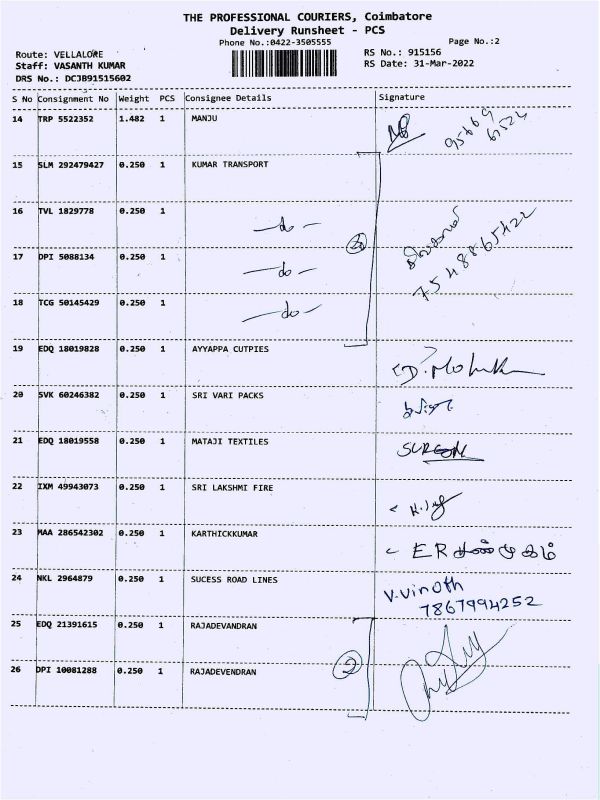 THE PROFESSIONAL COURIERS, Coimbatore
Delivery Runsheet - PCS
Phone No.:0422-3505555
Page No.:2
Route: VELLALORE
Staff: VASANTH KUMAR
DRS No.: DCJB91515602
RS No.: 915156
RS Date: 31-Mar-2022
S No Consignment No Weight PCS Consignee Details Signature
14 TRP 5522352 1.482 1 MANJU
15 SLM 292479427 0.250 1 KUMAR TRANSPORT
16 TVL 1829778 0.250 1 —do—
17 DPI 5088134 0.250 1 —do—
7548865422
18 TCG 50145429 0.250 1 —do—
19 EDQ 18019828 0.250 1 AYYAPPA CUTPIES
20 SVK 60246382 0.250 1 SRI VARI PACKS
21 EDQ 18019558 0.250 1 MATAJI TEXTILES
22 IXM 49943073 0.250 1 SRI LAKSHMI FIRE
23 MAA 286542302 0.250 1 KARTHICKKUMAR
24 NKL 2964879 0.250 1 SUCESS ROAD LINES V.Vinoth
7867994252
25 EDQ 21391615 0.250 1 RAJADEVANDRAN
26 DPI 10081288 0.250 1 RAJADEVENDRAN 2